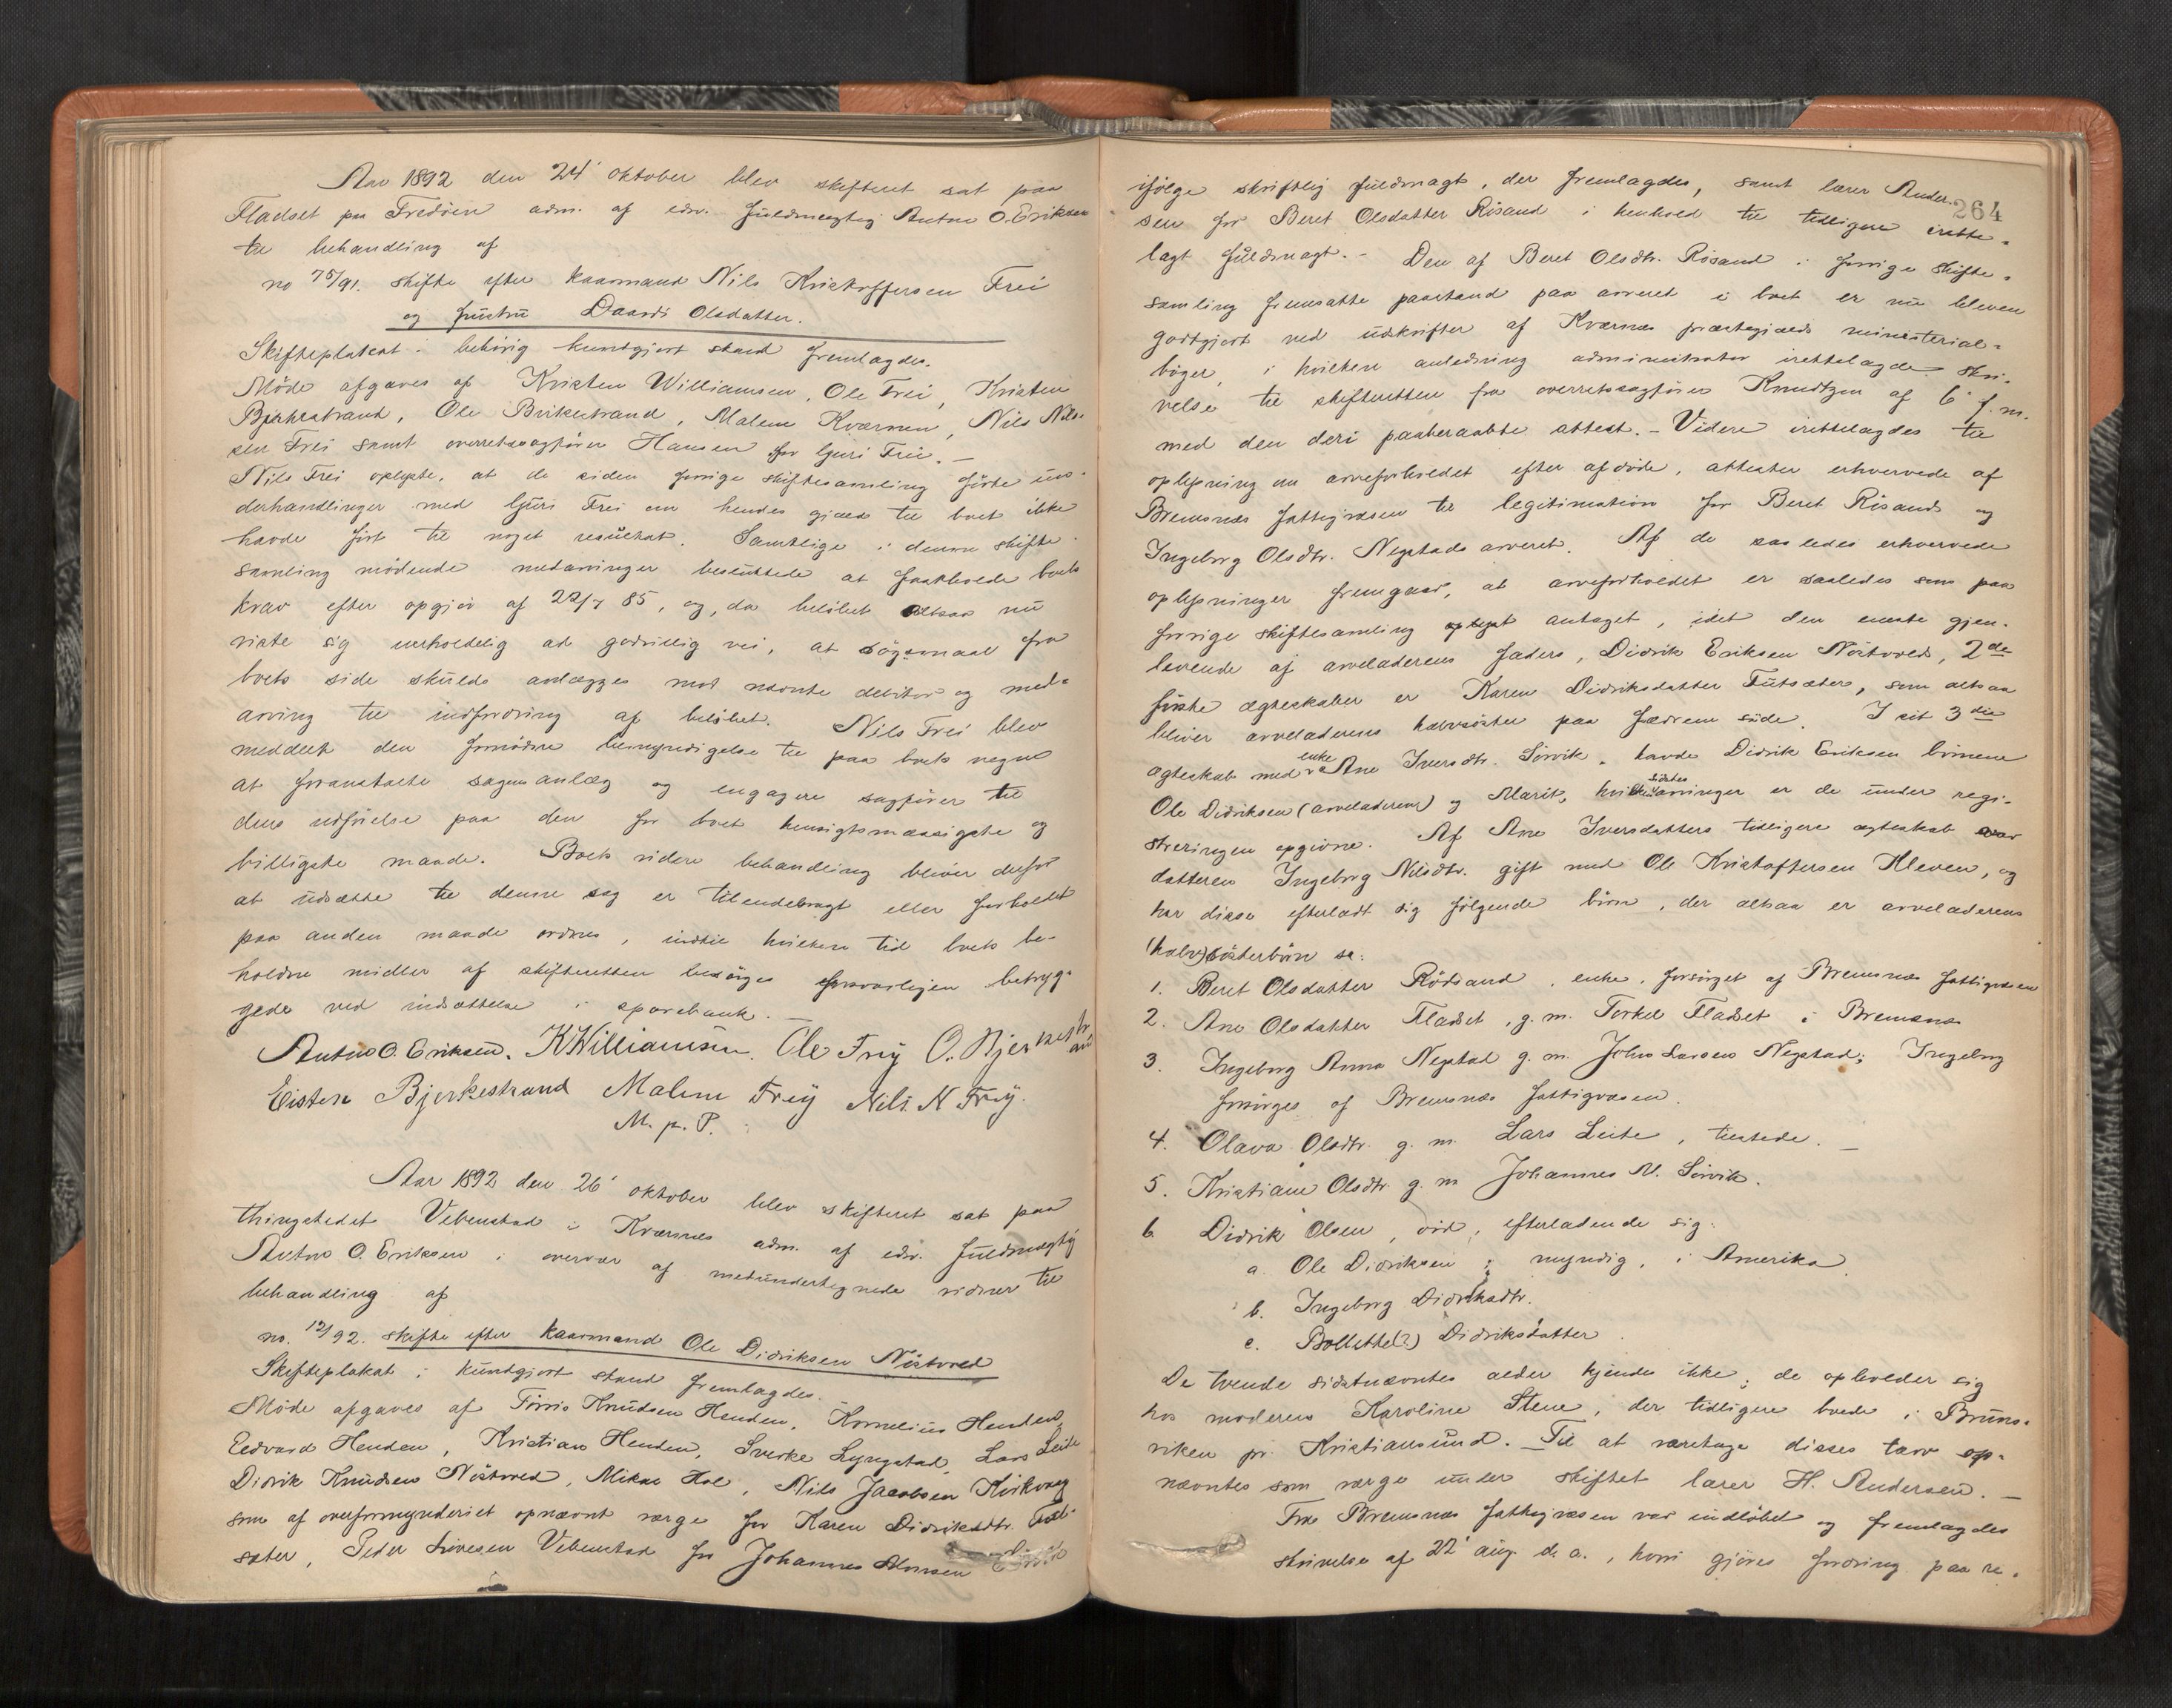 Aar 1892 den 24' oktober blev skifteret sat paa
Fladset pr Fredöen adm. af edsv. fuldmægtig Anton O. Eriksen
til behandling af
no 75/91. skifte efter kaarmand Nils Kristoffersen Frei
og hustru Daardi Olsdatter.
Skifteplakat i behörig kundgjort stand fremlagdes.
Möde afgaves af Kristen Williamsen, Ole Frei, Kristen
Bjerkestrand, Ole Birkestrand, Malene Kværnen, Nils Nils-
sen Frei samt overretssagförer Hansen for Guri Frei. —
Nils Frei oplyste, at de siden forrige skiftesamling förte un-
derhandlinger med Guri Frei om hendes gjæld til boet ikke
havde fört til noget resultat. Samtlige i denne skifte-
samling mödende medarvinger besluttede at fastholde boets
krav efter opgjör af 22/7 85, og, da belöbet altsaa nu
viste sig uerholdelig ad godvillig vei, at sögsmaal fra
boets side skulde anlægges mod nævnte debitor og med-
arving til inddrivning af belöbet. Nils Frei blev
meddelt den fornödne bemyndigelse til paa boets vegne
at foranstalte sagens anlæg og engagere sagförer til
dens udförelse paa den for boet hensigtsmæssigste og
billigste maade. Boets videre behandling bliver derfor
at udsætte til denne sag er tilendebragt eller forholdet
paa anden maade ordnes, indtil hvilken tid boets be-
holdne midler af skifteretten besörges forsvarligen betryg-
gede ved indsættelse i sparebank. —
Anton O. Eriksen. K Williamsen. Ole Frey O. Bjerkestrand
Eisten Bjerkestrand Malene Frey Nils N Frey.
M. p. P.
Aar 1892 den 26' oktober blev skifteret sat paa
thingstedet Vebenstad i Kværnes adm. af edsv. fuldmægtig
Anton O. Eriksen i overvær af medundertegnede vidner til
behandling af
no. 12/92. skifte efter kaarmand Ole Didriksen Nöstvred
Skifteplakat i kundgjort stand fremlagdes.
Möde afgaves af Törris Knudsen Henden, Kornelius Henden,
Eedvard Henden, Kristian Henden, Sverke Lyngstad, Lars Leite
Didrik Knudsen Nöstvred, Mikae Hol, Nils Jacobsen Kvikvaag
som af overformynderiet opnævnt værge for Karen Didriksdtr. Fut-
sæter, Peder Iversen Vebenstad for Johannes
264
ifölge skriftlig fuldmagt, der fremlagdes, samt lærer Ander-
sen for Beret Olsdatter Rösand i henhold til tidligere irette-
lagt fuldmagt. - Den af Beret Olsdtr. Rösand i forrige skifte-
samling fremsatte paastand paa arveret i boet er nu bleven
godtgjort ved udskrifter af Kværnes præstegjælds ministerial-
böger, i hvilken anledning administrator irettelagde skri-
velse til skifteretten fra overretssagförer Knudtzon af 6' f.m.
med den deri paaberaabte attest. - Videre irettelagdes til
oplysning om arveforholdet efter afdöde, attester erhvervede af
Bremsnæs fattigvæsen til legitimation for Beret Rösands og
Ingeborg Olsdtr. Negstads arveret. Af de saaledes erhvervede
oplysninger fremgaar, at arveforholdet er saaledes som paa
forrige skiftesamling oplyst antaget, idet den eneste gjen-
levende af arveladerens faders, Didrik Eriksen Nöstvreds, 2de
förste ægteskaber er Karen Didriksdatter Futsæter, som altsaa
bliver arveladerens halvsöster paa fædrene side. I sit 3die
ægteskab med enke Ane Iversdtr. Sörvik, havde Didrik Eriksen börnene
Ole Didriksen (arveladeren) og Marit, hvis sidstes arvinger er de under regi-
streringen opgivne. Af Ane Iversdatters tidligere ægteskab var
datteren Ingeborg Nilsdtr. gift med Ole Kristoffersen Kleven, og
har disse efterladt sig fölgende börn, der altsaa er arveladerens
(halv)sösterbörn se:
1. Beret Olsdatter Rösand, enke, forsörget af Bremsnæs fattigvæsen
2. Ane Olsdatter Fladset, g. m. Torkel Fladset i Bremsnæs
3. Ingeborg Anna Negstad g. m. John Larsen Negstad; Ingeborg
forsörges af Bremsnæs fattigvæsen.
4. Olava Olsdtr. g. m. Lars Leite, tilstede. —
5. Kristiane Olsdtr. g. m Johannes N. Sörvik.
6 Didrik Olsen, död, efterladende sig:
a. Ole Didriksen, myndig, i Amerika
b. Ingeborg Didriksdtr.
c. Bollette(?) Didriksdatter.
De tvende sidstnævntes alder kjendes ikke; de opholder sig
hos moderen Karoline Stene, der tidligere boede i Bruns-
viken pr. Kristiansund. Til at varetage disses tarv op-
nævntes som værge under skiftet lærer H. Andersen. —
Fra Bremsnæs fattigvæsen var indlöbet og fremlagdes
skrivelse af 22' aug. d. a., hvori gjöres fordring paa re-